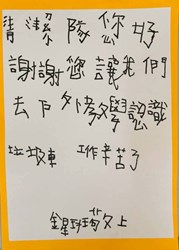 清潔隊您好
謝謝您讓我們
去戶外教學認識
垃圾車 工作辛苦了
星班敬上